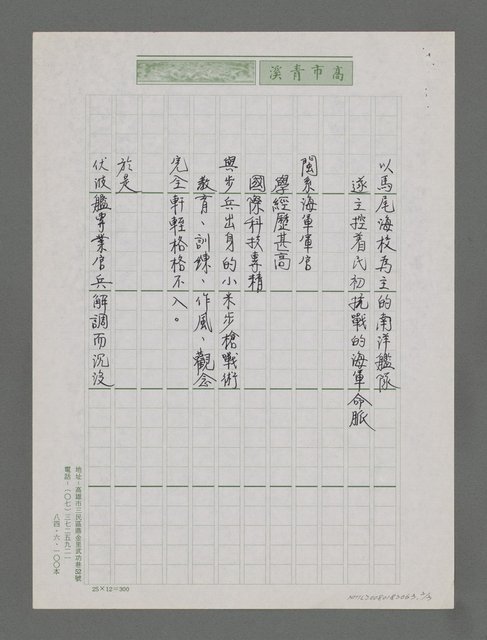 高市青溪
以馬尾海校為主的南洋艦隊
遂主控着民初抗戰的海軍命脈
閩系海軍軍官
學經歷甚高
國際科技專精
與步兵出身的小米步槍戰術
教育、訓練、作風、觀念
完全軒輊格格不入。
於是
伏波艦專業官兵解調而沉沒
地址－高雄市三民區鼎金里武功巷52號
電話－(〇七)三七二五九二一
八四・六・一〇〇本
25×12=300